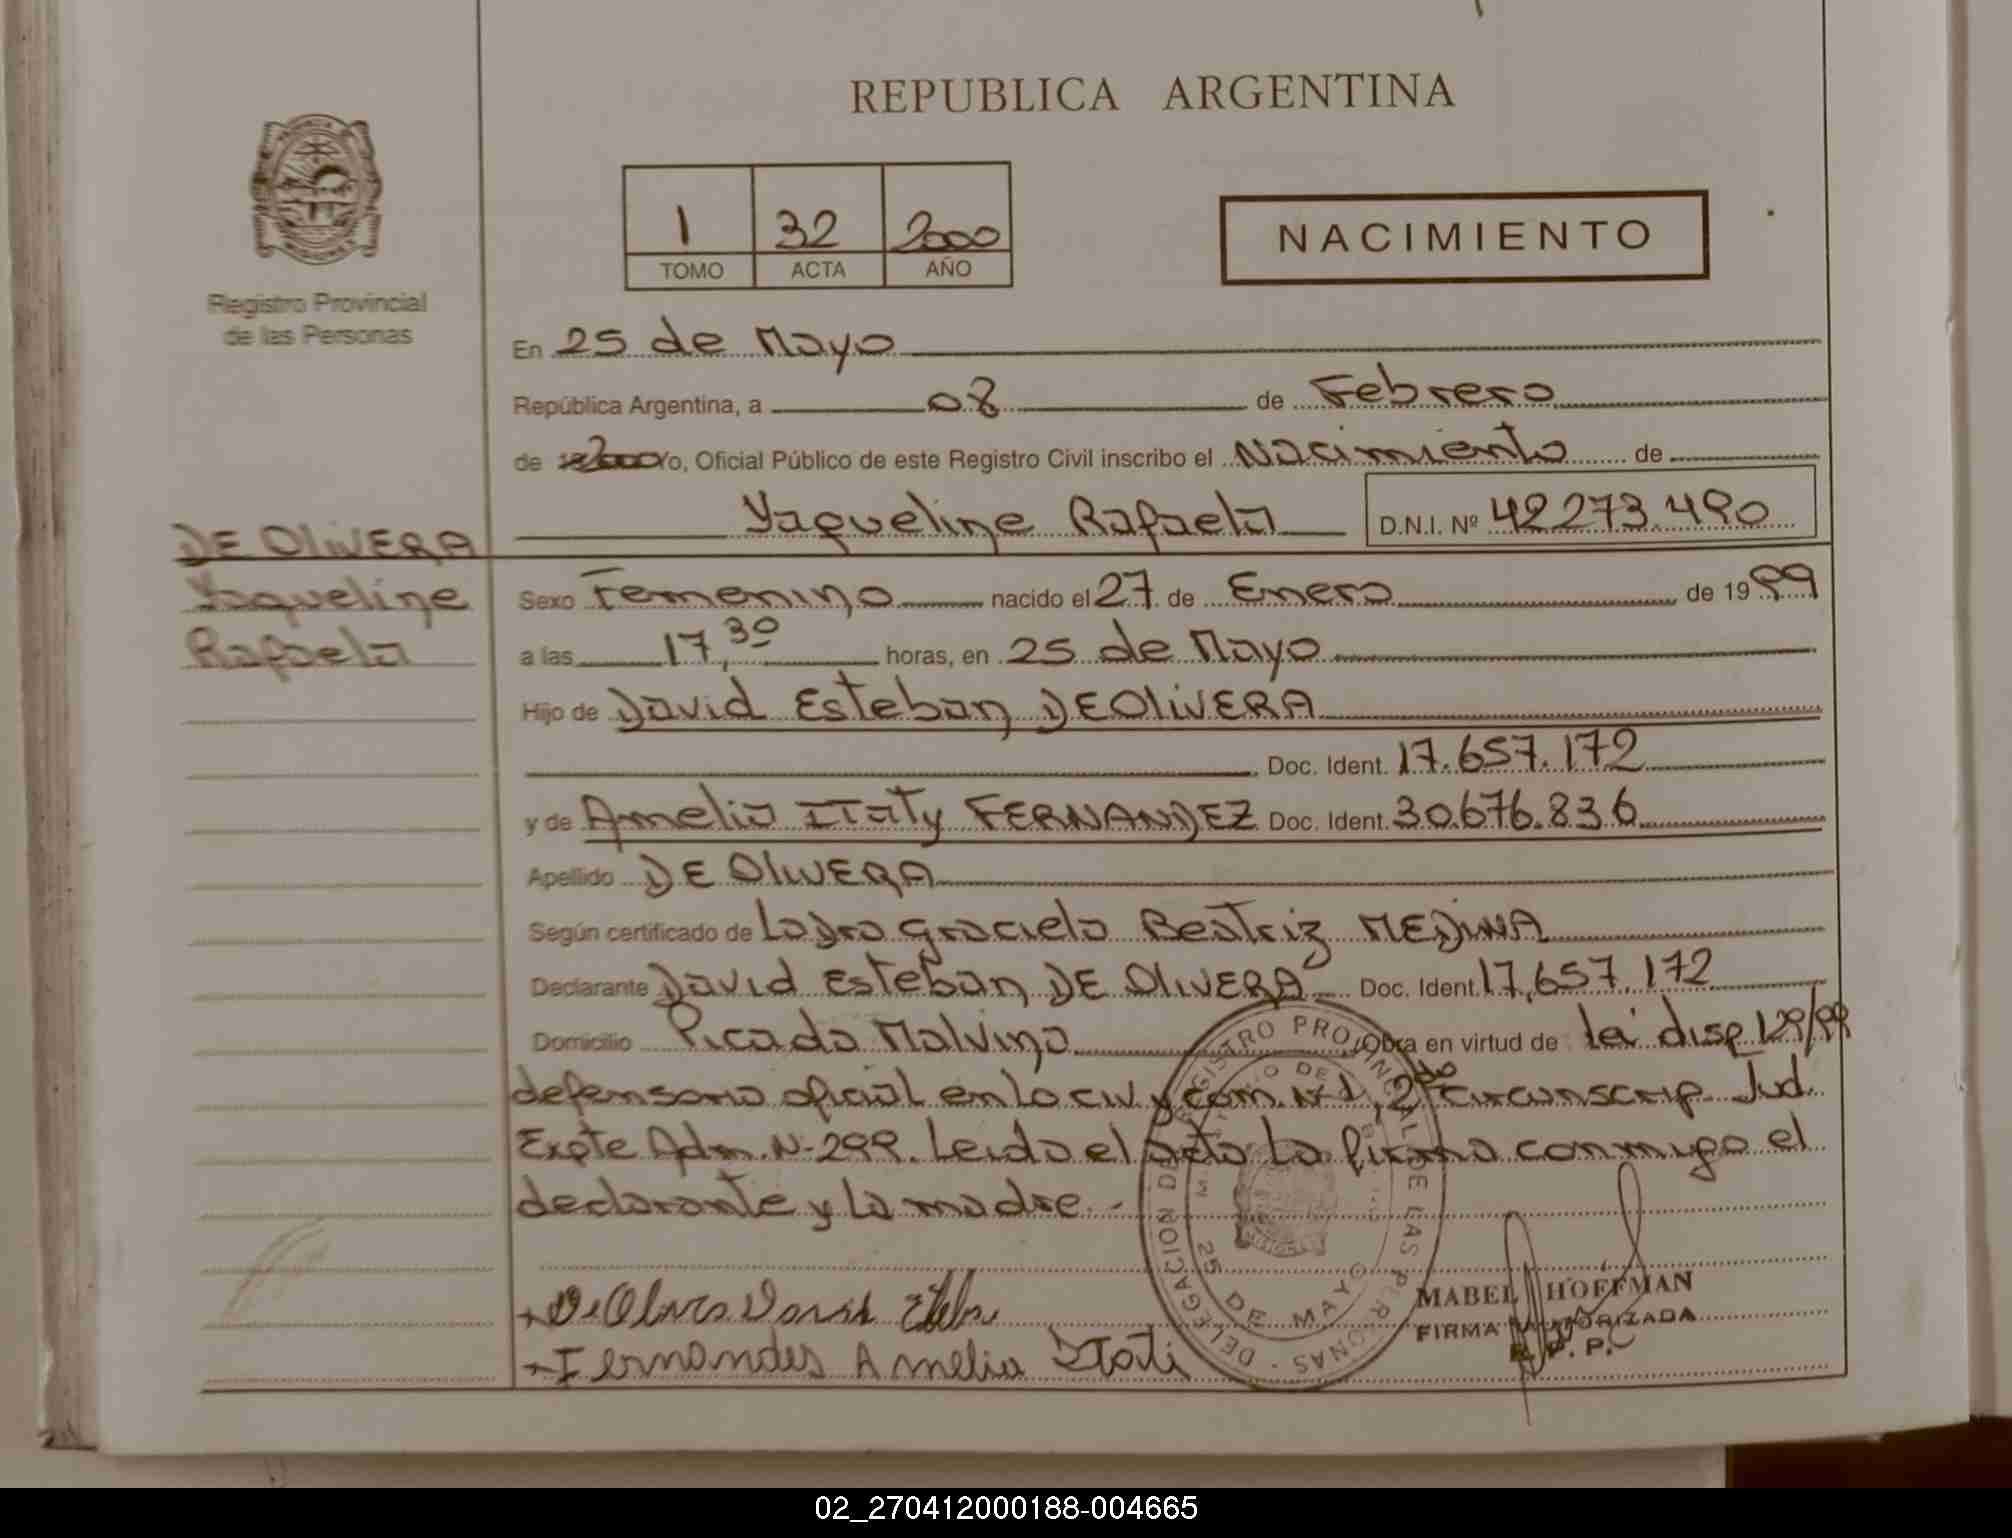 REPUBLICA ARGENTINA
1 32 2000
TOMO ACTA AÑO
NACIMIENTO
Registro Provincial
de las Personas
En 25 de Mayo
República Argentina, a 08 de Febrero
de 2000 Yo, Oficial Público de este Registro Civil inscribo el Nacimiento de
Yaqueline Rafaela D.N.I. Nº 42.273.490
DE OliVERA
Yaqueline
Rafaela
Sexo Femenino nacido el 27 de Enero de 1999
a las 17,30 horas, en 25 de Mayo
Hijo de David Esteban DE OliVERA
Doc. Ident. 17.657.172
y de Amelia ITaty FERNANDEZ Doc. Ident. 30.676.836
Apellido DE OliVERA
Según certificado de La Dra Graciela Beatriz MEDiNA
Declarante David Esteban DE OliVERA Doc. Ident. 17,657.172
Domicilio Picada Malvina Obra en virtud de Lei disp 129/99
defensoria oficial en lo civ y com. Nº 1, 2da circunscrip. Jud.
Expte Adm. N-299. Leida el acta La firma conmigo el
declarante y la madre.-
REGISTRO PROVINCIAL DE LAS PERSONAS - DELEGACION DE
25 DE MAYO
MISIONES
De Olivera David
Fernandes Amelia Itati
MABEL HOFFMAN
FIRMA AUTORIZADA
R. P. P.
02_270412000188-004665